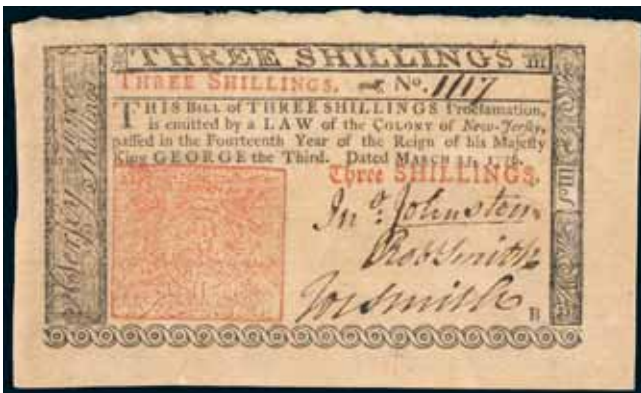 THREE SHILLINGS III
THREE SHILLINGS. No. 1117
THIS BILL of THREE SHILLINGS Proclamation,
is emitted by a LAW of the COLONY of New-Jersey,
passed in the Fourteenth Year of the Reign of his Majesty
King GEORGE the Third. Dated MARCH
Three SHILLINGS.
Jno. Johnston
Rob Smith
Jos Smith B
New Jersey Three Shillings
III s